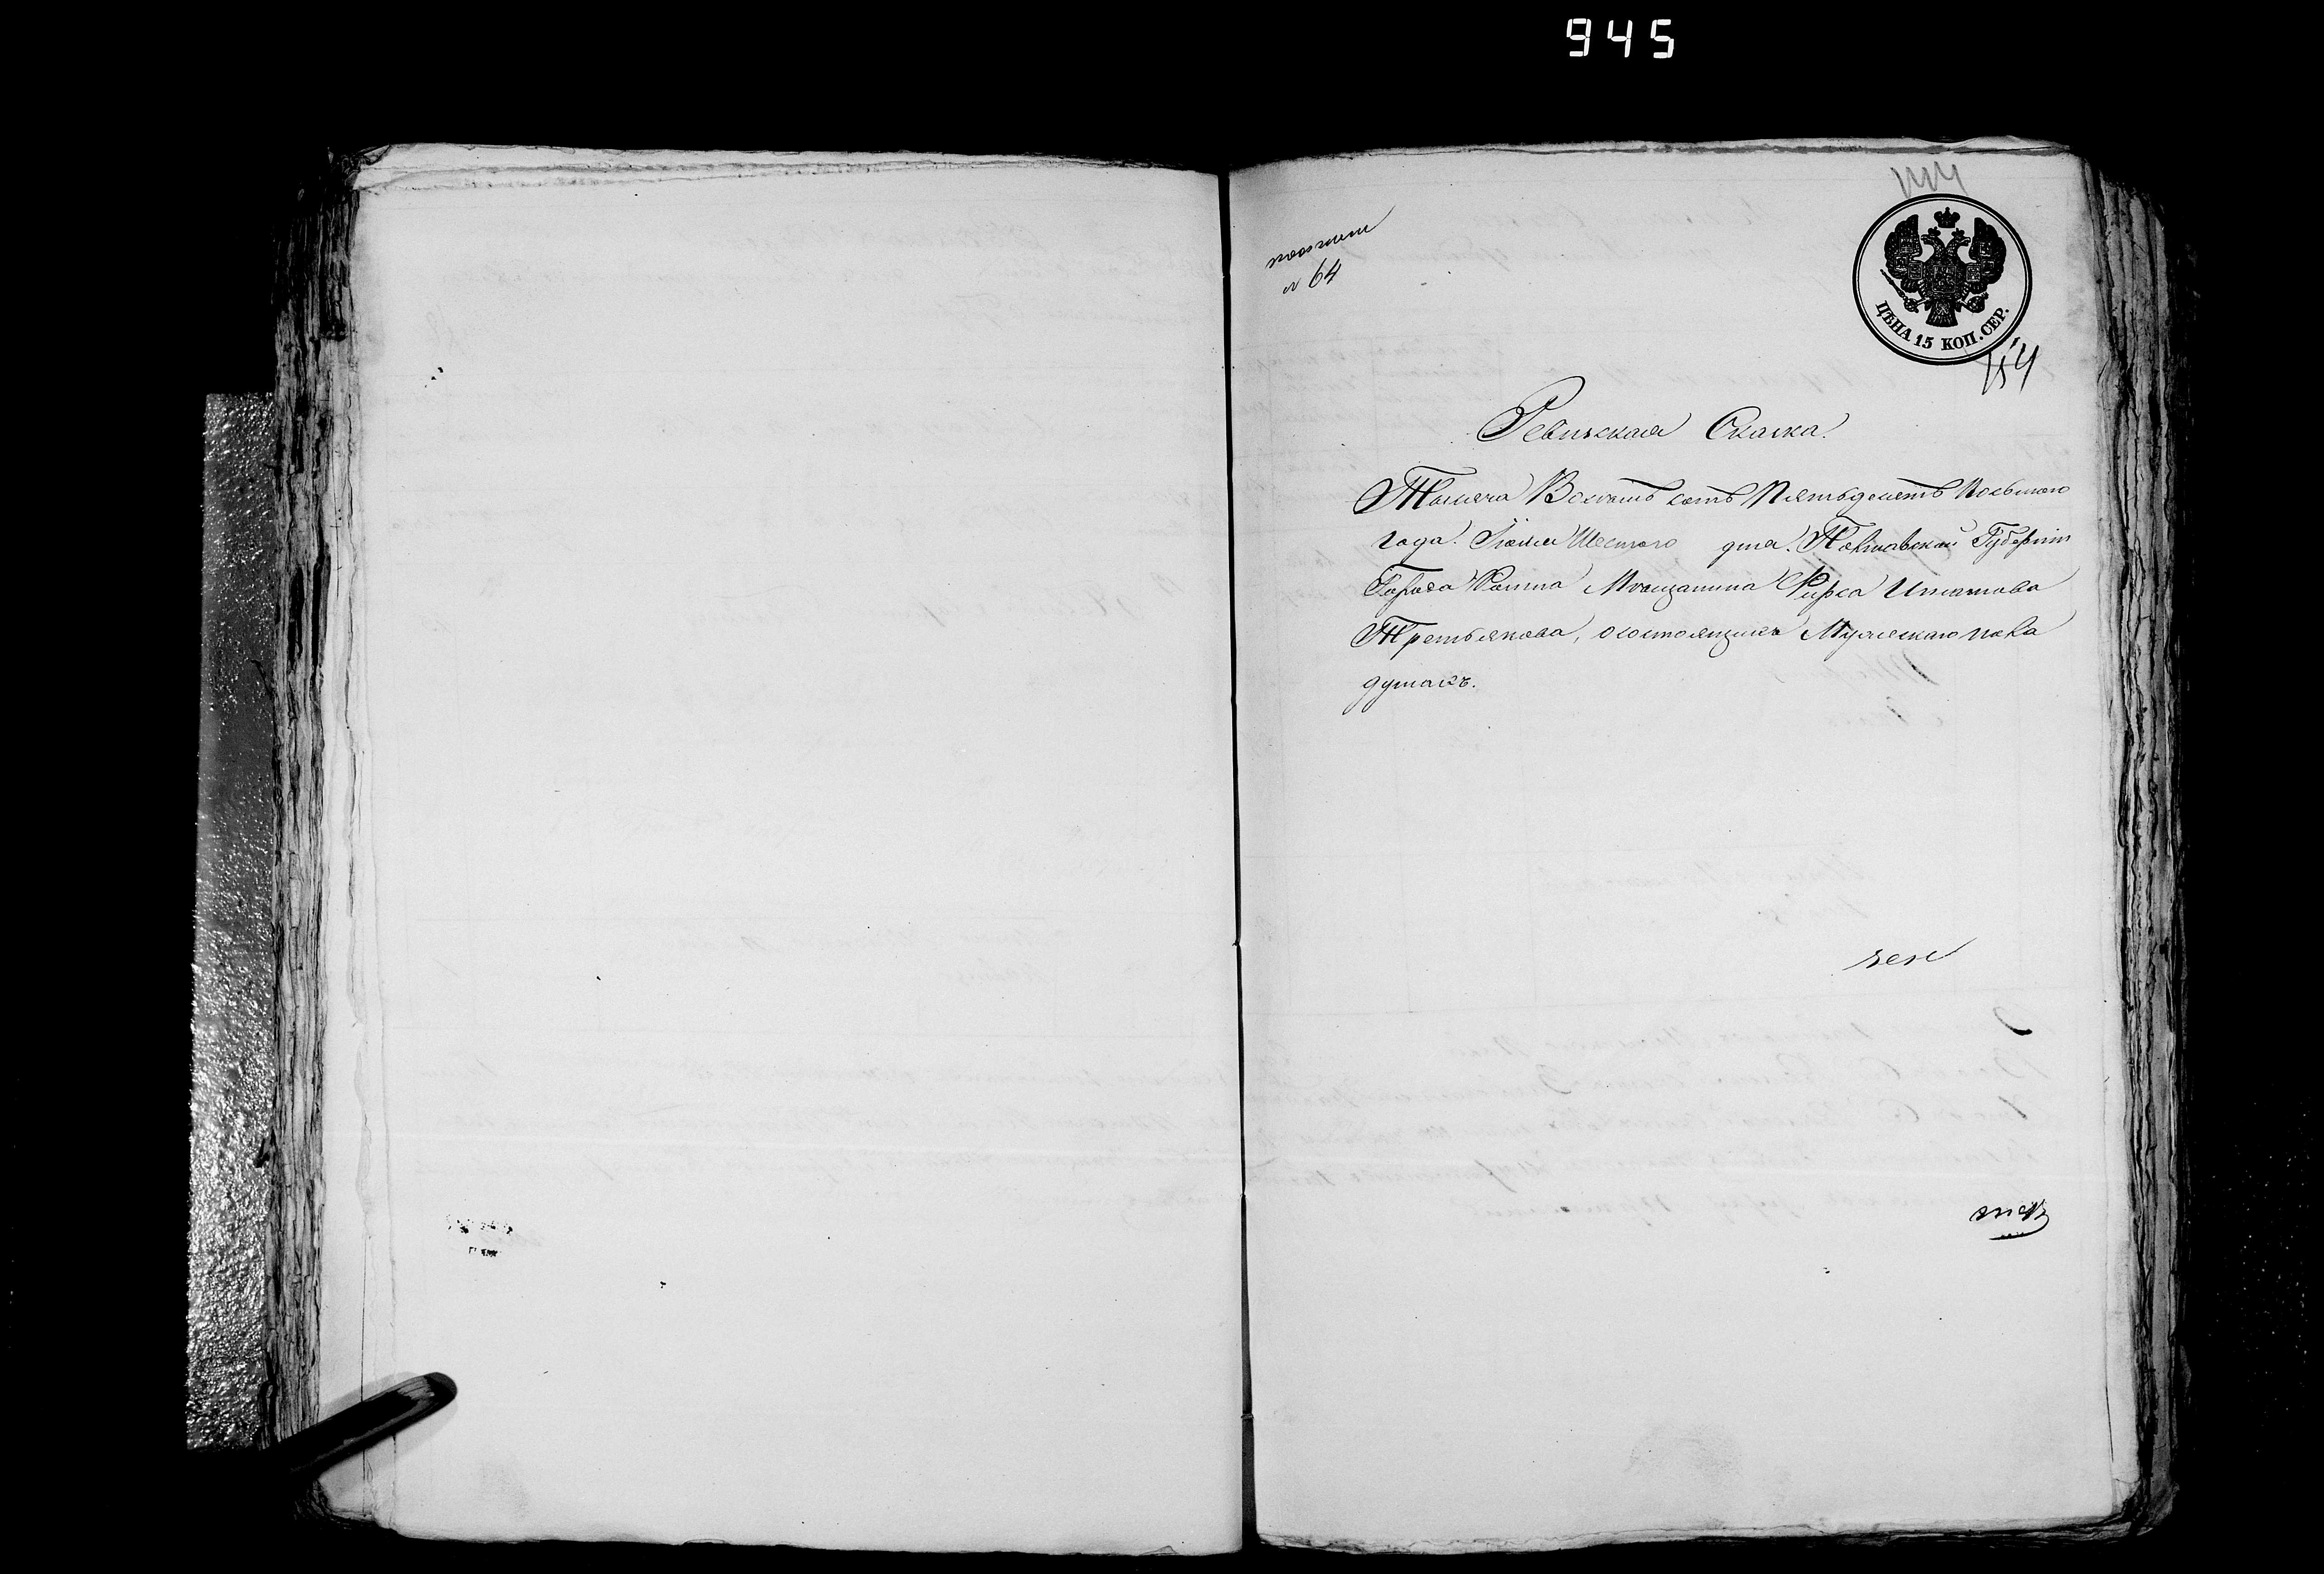 945
№ 64
ЦѢНА 15 КОП. СЕР.
Ревизская Сказка.
Тысяча Восемь сотъ Пятьдесятъ Восьмого
года. Іюня Шестого дня. Полтавской Губерніи
Города Ромна Мещанина Фирса Игнатова
Третьякова, о состоящихъ Мужескаго пола
душахъ.